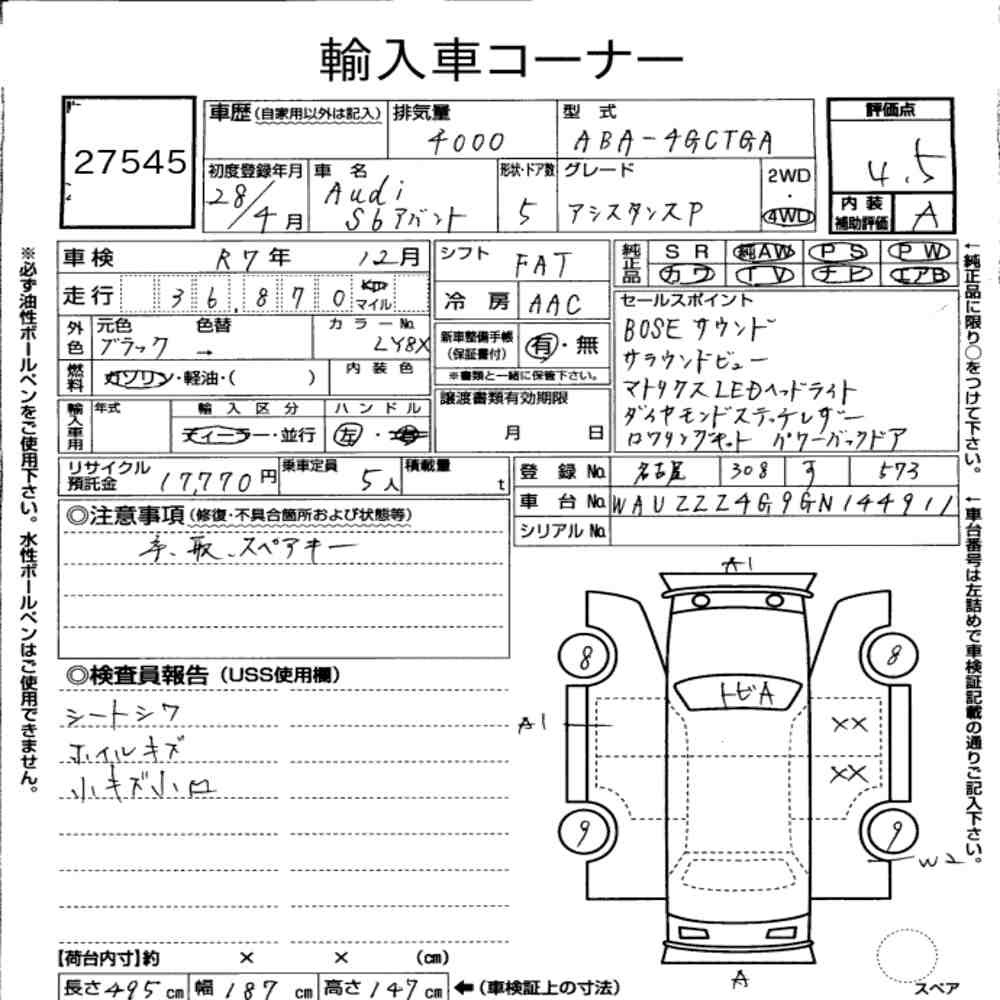 輸入車コーナー
27545
車歴(自家用以外は記入)
排気量
4000
型 式
ABA-4GCTGA
評価点
4.5
初度登録年月
28/4月
車 名
Audi
S6アバント
形状・ドア数
5
グレード
アシスタンスP
2WD
・
4WD
内 装
補助評価
A
車検
R7年 12月
シフト
FAT
純正品
SR 純AW PS PW
カワ TV ナビ エアB
走行
36,870
km
マイル
冷 房
AAC
セールスポイント
BOSEサウンド
サラウンドビュー
マトリクスLEDヘッドライト
ダイヤモンドステッチレザー
ロワリングキット パワーバックドア
外色
元色
ブラック
色替
→
カラーNo.
LY8X
新車整備手帳
(保証書付)
有・無
※書類と一緒に保管下さい。
燃料
ガソリン・軽油・( )
内 装 色
譲渡書類有効期限
月 日
輸入車用
年式
輸 入 区 分
ディーラー・並行
ハ ン ド ル
左・右
リサイクル
預託金
17,770円
乗車定員
5人
積載量
t
登 録 No.
名古屋 308 す 573
車 台 No.
WAUZZZ4G9GN144911
シリアル No.
◎注意事項(修復・不具合箇所および状態等)
革、取、スペアキー
◎検査員報告(USS使用欄)
シートシワ
ホイルキズ
小キズ小凹
A1
8
8
トビA
A1
XX
XX
9
9
W2
A
スペア
【荷台内寸】約 × × (cm)
長さ495cm 幅187cm 高さ147cm ←(車検証上の寸法)
※必ず油性ボールペンをご使用下さい。水性ボールペンはご使用できません。
←純正品に限り○をつけて下さい。
←車台番号は左詰めで車検証記載の通りご記入下さい。